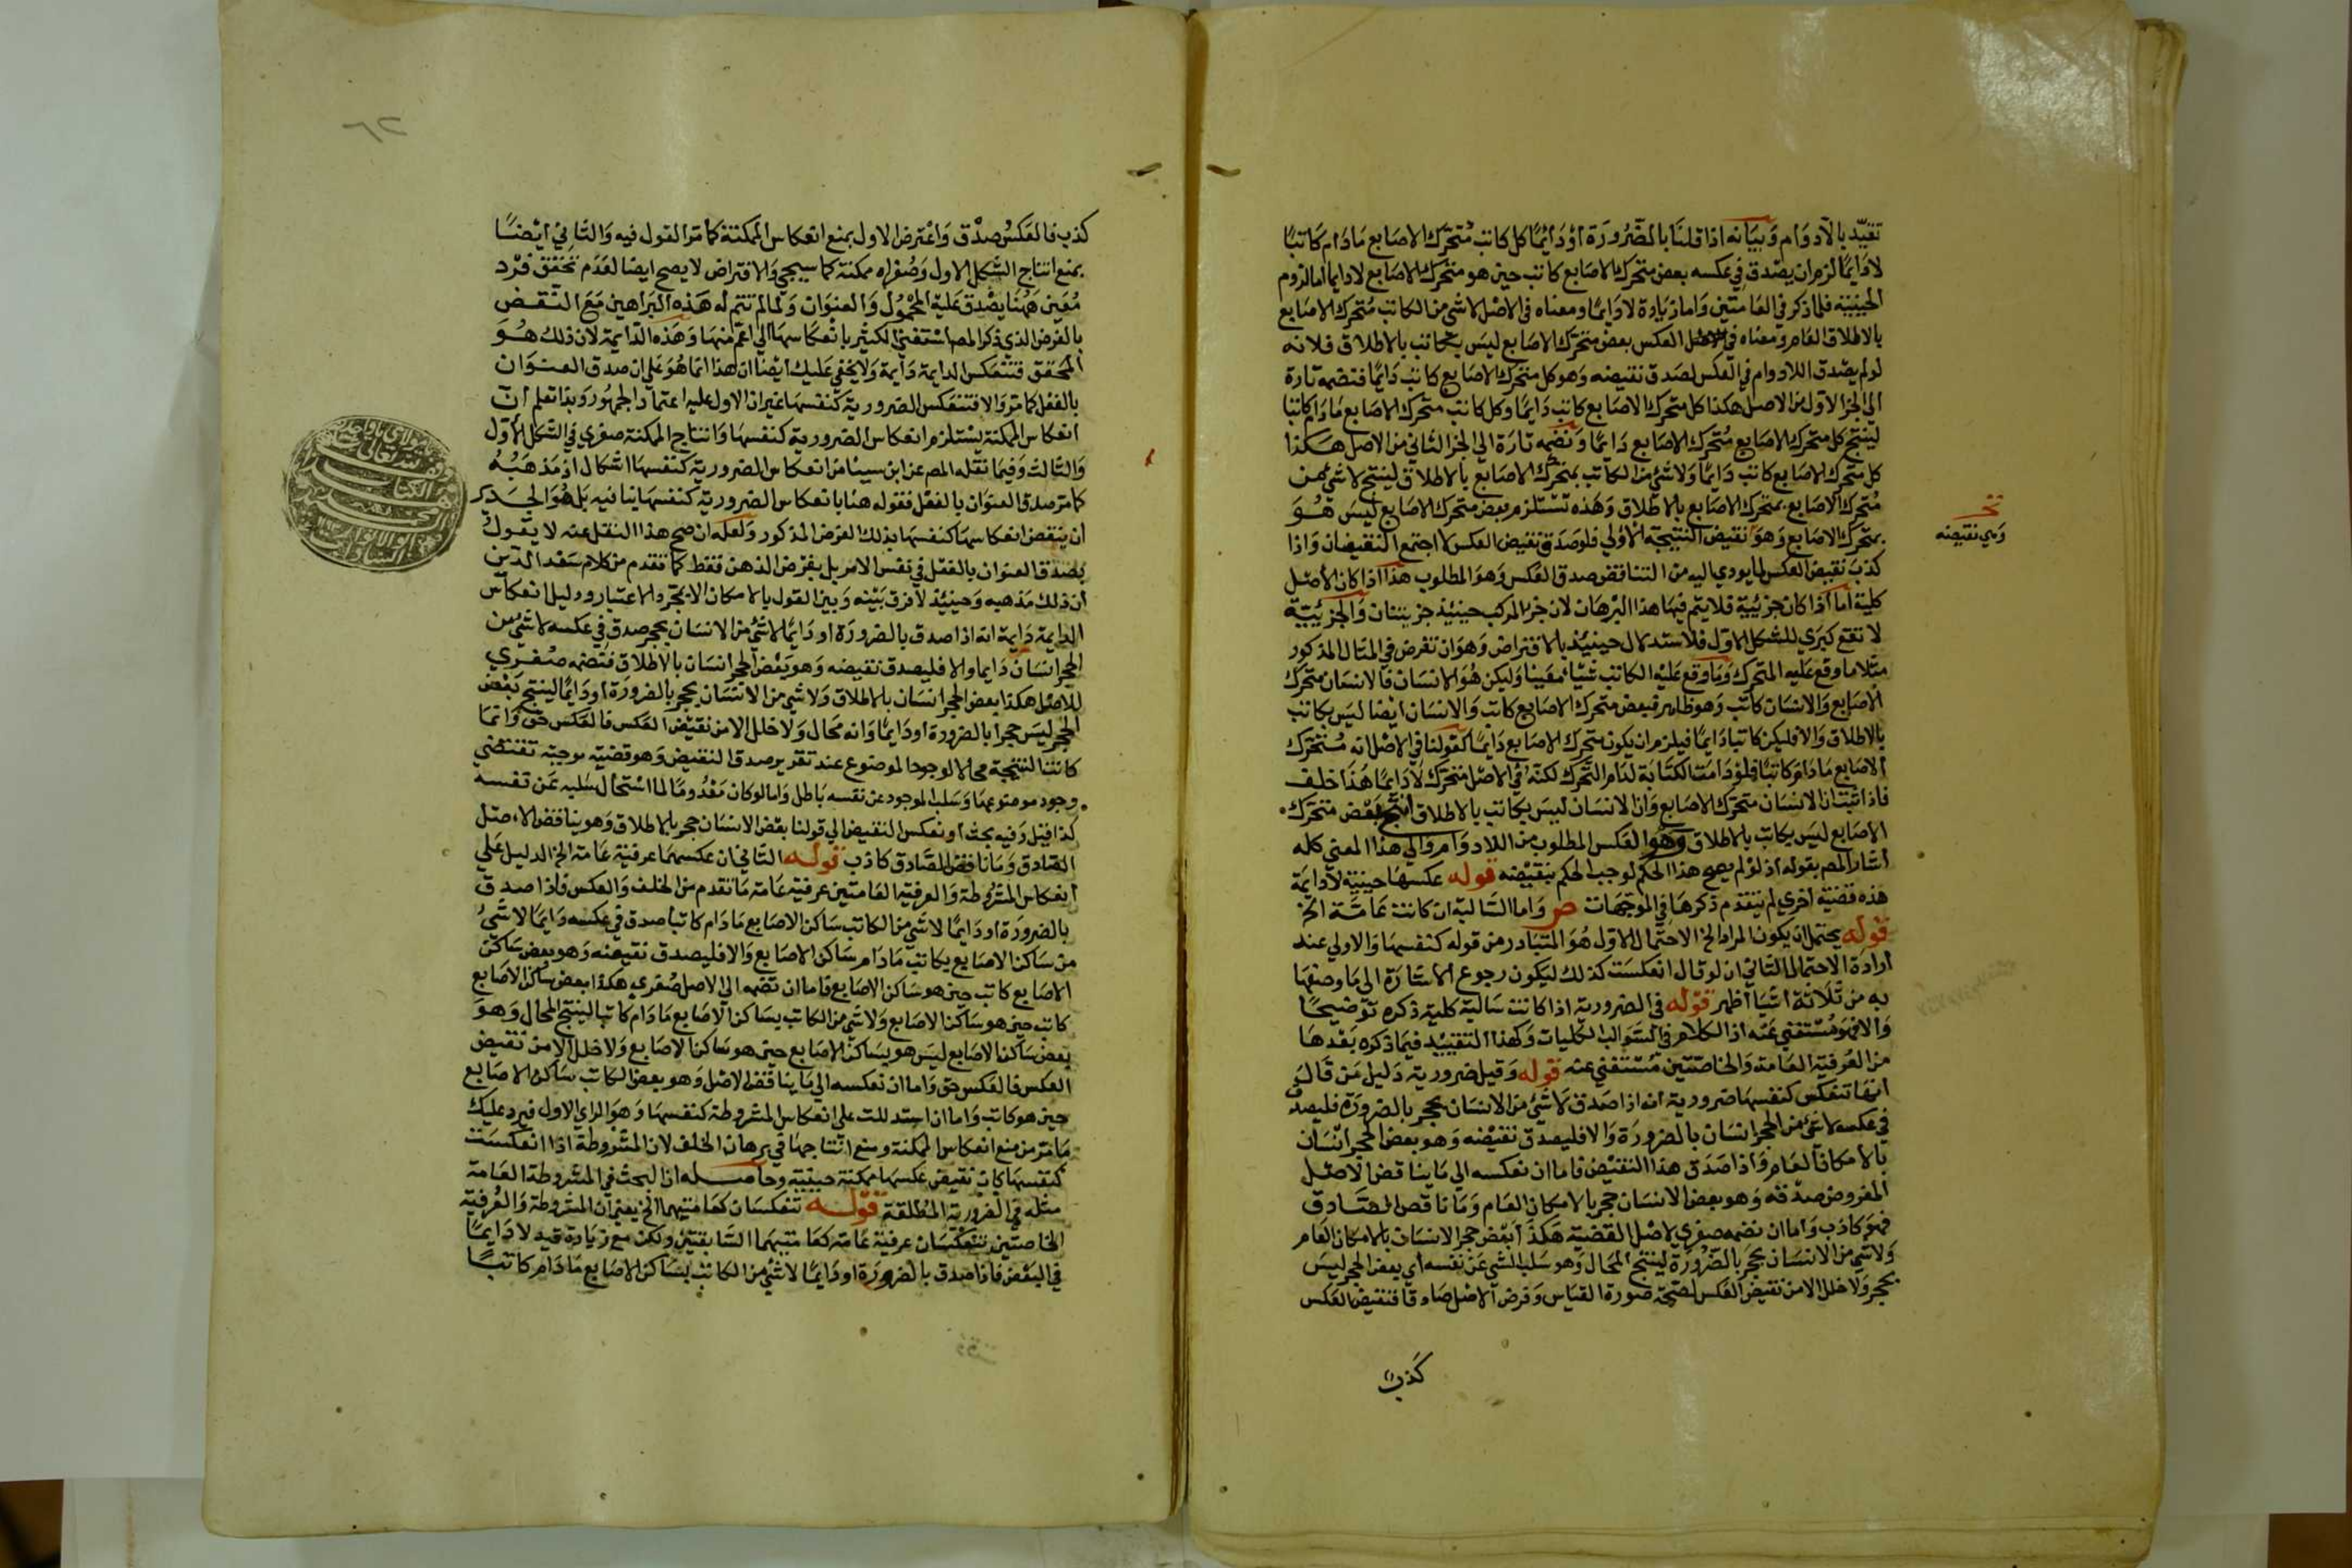 تقيّد بالادوام وبيانه اذا قلنا بالضرورة او دائما كل كاتب متحرك الاصابع مادام كاتبا
لا دايما لزم ان يصدق في عكسه بعض متحرك الاصابع كاتب حين هو متحرك الاصابع لا دايما اما لزوم
الحينية فلما ذكر في العامتين واما زيادة لا دايما ومعناه في الاصل لا شي من الكاتب متحرك الاصابع
بالاطلاق العام ومعناه في العكس بعض متحرك الاصابع ليس بكاتب بالاطلاق فلانه
لو لم يصدق اللادوام في العكس لصدق نقيضه وهو كل متحرك الاصابع كاتب دايما فنضمه تارة
الي الجز الاول من الاصل هكذا كل متحرك الاصابع كاتب دايما وكل كاتب متحرك الاصابع مادام كاتبا
لينتج كل متحرك الاصابع متحرك الاصابع دايما ونضمه تارة الي الجز الثاني من الاصل هكذا
كل متحرك الاصابع كاتب دايما ولا شي من الكاتب بمتحرك الاصابع بالاطلاق لينتج لا شي من
متحرك الاصابع بمتحرك الاصابع بالاطلاق وهذه تستلزم بعض متحرك الاصابع ليس هو
بمتحرك الاصابع وهو نقيض النتيجة الاولي فلو صدق نقيض العكس لاجتمع النقيضان واذا
كذب نقيض العكس لما يودي اليه من التناقض صدق العكس وهو المطلوب هذا اذا كان الاصل
كلية اما اذا كان جزيية فلا يتم فيها هذا البرهان لان جزا المركب حينيذ جزييتان والجزيية
لا تقع كبري للشكل الاول فلاستدلال حينيذ بالافتراض وهو ان تفرض في المثال المذكور
مثلا ما وقع عليه المتحرك وما وقع عليه الكاتب شيا معينا وليكن هو الانسان فالانسان متحرك
الاصابع والانسان كاتب وهو ظاهر فبعض متحرك الاصابع كاتب والانسان ايضا ليس بكاتب
بالاطلاق والا فليكن كاتبا دايما فيلزم ان يكون متحرك الاصابع دايما كقولنا في الاصل انه متحرك
الاصابع مادام كاتبا فلو دامت الكتابة لدام التحرك لكنه في الاصل متحرك لا دايما هذا خلف
فاذا ثبت ان الانسان متحرك الاصابع وان الانسان ليس بكاتب بالاطلاق انتج بعض متحرك
الاصابع ليس بكاتب بالاطلاق وهو العكس المطلوب من اللادوام والي هذا المعني كله
اشار المص بقوله اذ لو لم يصح هذا الحكم لوجب الحكم بنقيضه قوله عكسها حينية لا دايمة
هذه قضية اخري لم يتقدم ذكرها في الموجهات ص واما السالبة ان كانت عامة الخ
قوله يحتمل ان يكون المراد الخ الاحتمال الاول هو المتبادر من قوله كنفسها والاولي عند
ارادة الاحتمال الثاني ان لو قال انعكست كذلك ليكون رجوع الاشارة الي ما وصفها
به من ثلاثة اشيا اظهر قوله في الضرورية اذا كانت سالبة كلية ذكره توضيحا
والا فهو مستغني عنه اذ الكلام في السوالب الكليات وكهذا التقييد فيما ذكره بعدها
من العرفية العامة والخاصتين مستغني عنه قوله وقيل ضرورية دليل من قال
انها تنعكس كنفسها ضرورية انه اذا صدق لا شي من الانسان بحجر بالضرورة فليصدق
في عكسه لا شي من الحجر انسان بالضرورة والا فليصدق نقيضه وهو بعض الحجر انسان
بالامكان العام واذا صدق هذا النقيض فاما ان نعكسه الي ما يناقض الاصل
المفروض صدقه وهو بعض الانسان حجر بالامكان العام وما ناقض الصادق
فهو كاذب واما ان نضمه صغري لاصل القضية هكذا بعض حجر الانسان بالامكان العام
ولا شي من الانسان بحجر بالضرورة لينتج المحال وهو سلب الشي عن نفسه اي بعض الحجر ليس
بحجر ولا خلل الا من نقيض العكس لصحة صورة القياس وفرض الاصل صادقا فنقيض العكس
كذب
وهي نقيضه
كذب فالعكس صدق واعترض الاول بمنع انعكاس الممكنة كما مر القول فيه والثاني ايضا
بمنع انتاج الشكل الاول وصغراه ممكنة كما سيجي والافتراض لا يصح ايضا لعدم تحقق فرد
معين ههنا يصدق عليه المحمول والعنوان ولما لم تتم له هذه البراهين مع النقض
بالفرض الذي ذكر المص استغني الكثير بانعكاسها الي اعم منها وهذه الدايمة لان ذلك هو
المحقق فتنعكس الدايمة دايمة ولا يخفي عليك ايضا ان هذا انما هو علي ان صدق العنوان
بالفعل كما مر والا فتنعكس الضرورية كنفسها غير ان الاول عليه اعتماد الجمهور وبذا تعلم ان
انعكاس الممكنة يستلزم انعكاس الضرورية كنفسها وانتاج الممكنة صغري في الشكل الاول
والثالث وفيما نقله المص عن ابن سينا من انعكاس الضرورية كنفسها اشكال اذ مذهبه
كما مر صدق العنوان بالفعل فقوله هنا بانعكاس الضرورية كنفسها ينافيه بل هو الجدير
ان ينقض انعكاسها كنفسها بذلك الفرض المذكور ولعله ان صح هذا النقل عنه لا يقول
بصدق العنوان بالفعل في نفس الامر بل بفرض الذهن فقط كما تقدم من كلام سعد الدين
ان ذلك مذهبه وحينيذ لا فرق بينه وبين القول بالامكان الا بمجرد الاعتبار ودليل انعكاس
الدايمة دايمة انه اذا صدق بالضرورة او دايما لا شي من الانسان بحجر صدق في عكسه لا شي من
الحجر انسان دايما والا فليصدق نقيضه وهو بعض الحجر انسان بالاطلاق فنضمه صغري
للاصل هكذا بعض الحجر انسان بالاطلاق ولا شي من الانسان بحجر بالضرورة او دايما لينتج بعض
الحجر ليس حجرا بالضرورة او دايما وانه محال ولا خلل الا من نقيض العكس فالعكس حق وانما
كانت النتيجة محالا لوجود الموضوع عند تقرير صدق النقيض وهو قضية موجبة تقتضي
وجود موضوعها وسلب الموجود عن نفسه باطل واما لو كان معدوما لما استحال سلبه عن نفسه
كذا قيل وفيه بحث او نعكس النقيض الي قولنا بعض الانسان حجر بالاطلاق وهو يناقض الاصل
الصادق وما ناقض الصادق كاذب قوله الثاني ان عكسهما عرفية عامة الخ الدليل علي
انعكاس المشروطة والعرفية العامتين عرفية عامة ما تقدم من الخلف والعكس فاذا صدق
بالضرورة او دايما لا شي من الكاتب ساكن الاصابع مادام كاتبا صدق في عكسه دايما لا شي
من ساكن الاصابع بكاتب مادام ساكن الاصابع والا فليصدق نقيضه وهو بعض ساكن
الاصابع كاتب حين هو ساكن الاصابع فاما ان نضمه الي الاصل صغري هكذا بعض ساكن الاصابع
كاتب حين هو ساكن الاصابع ولا شي من الكاتب بساكن الاصابع مادام كاتبا لينتج المحال وهو
بعض ساكن الاصابع ليس هو بساكن الاصابع حين هو ساكن الاصابع ولا خلل الا من نقيض
العكس فالعكس حق واما ان نعكسه الي ما يناقض الاصل وهو بعض الكاتب ساكن الاصابع
حين هو كاتب واما ان استدللت علي انعكاس المشروطة كنفسها وهو الراي الاول فيرد عليك
ما مر من منع انعكاس الممكنة ومنع انتاجها في برهان الخلف لان المشروطة اذا انعكست
كنفسها كان نقيض عكسها ممكنة حينية وحاصله ان البحث في المشروطة العامة
مثله في الضرورية المطلقة قوله تنعكسان كعامتيهما الخ يعني ان المشروطة والعرفية
الخاصتين تنعكسان عرفية عامة كعامتيهما السابقتين ولكن مع زيادة قيد لا دايما
في البعض فاذا صدق بالضرورة او دايما لا شي من الكاتب بساكن الاصابع مادام كاتبا